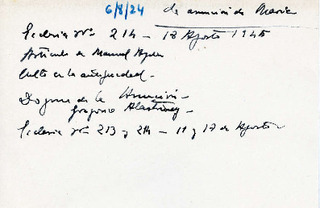 6/8/24 La asunción de María
Ecclesia nº 214 - 18 Agosto 1945
Artículo de Manuel
Culto en la antigüedad -
Dogma de la Asunción -
Gregorio Alastruey -
Ecclesia nº 213 y 214 - 11 y 17 de Agosto